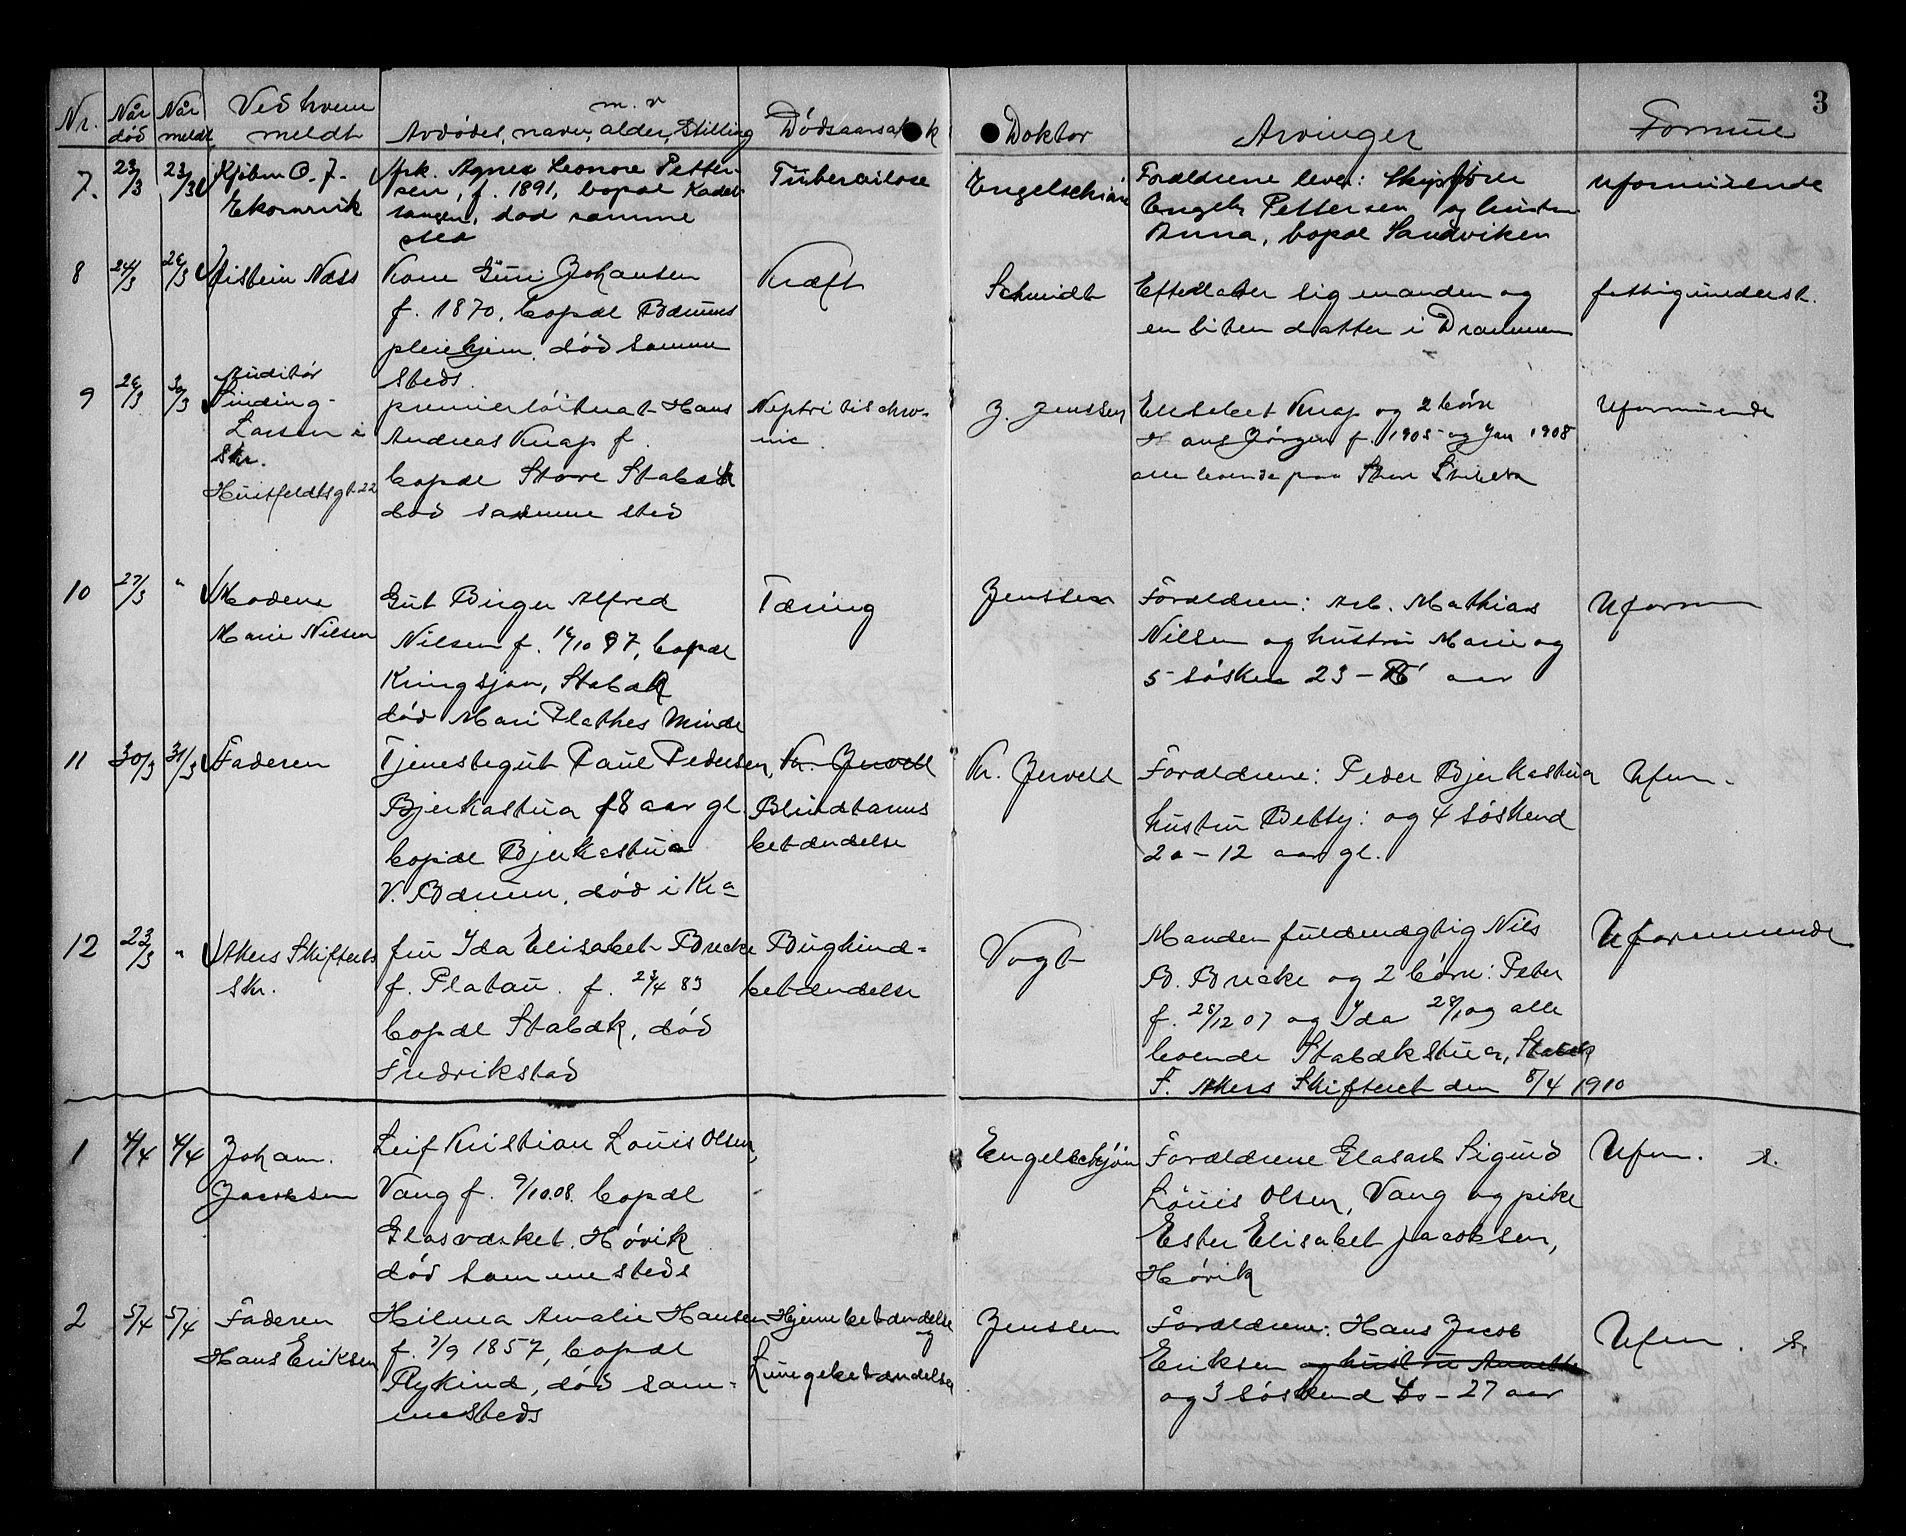 3
Nr. Når død Når meldt Ved hvem meldt Avdødes navn, alder, Stilling m. v Dødsaarsak Doktor Arvinger Formue
7. 23/3 23/3 Kjøbm O. J. Ekornvik
Pk. Agnes Leonore Petter-
sen, f. 1891, bopæl Kadet-
tangen, død samme
sted
Tuberculose
Engelschiøn
Forældrene lever: Skipsfører
Engelb. Pettersen og hustru
Anna, bopæl Sandviken
uformuende
8 24/3 26/3 Eistein Næss
Kone Guri Johansen
f. 1870, bopæl Bærums
pleiehjem, død samme
steds.
Kræft
Schmidt
Efterlater sig manden og
en liten datter i Drammen
fattigunderst.
9 26/3 30/3 Auditør
Sinding-
Larsen i
Skr.
Huitfeldtsgt. 22
premierløitnat Hans
Andreas Knap f.
bopæl Store Stabæk
død samme sted
Neptritis chro-
nic
J. Jenssen
Elisabet Knap og 2 børn
Hans Jørgen f. 1905 og Jan 1908
alle boende paa Store Stabæk
Uformuende
10 27/3 " Moderen
Marie Nilsen
Gut Birger Alfred
Nilsen f. 16/10 97, bopæl
Kringsjaa, Stabæk
død Mari Plathes Minde
Tæring
Jenssen
Forældrene: Arb. Mathias
Nilsen og hustru Marie og
5 søsken 23 - aar
Uform
11 30/3 31/3 Faderen
Tjenestegut Paul Pedersen,
Bjerkastua 18 aar gl
bopæl Bjerkastua
V. Bærum, død i Kra
Kr. Jervell
Blindtarms
betændelse
Kr. Jervell
Forældrene: Peder Bjerkastua
hustru Betty: og 4 søskend
20-12 aar gl.
Ufm.
12 23/3 " Akers Skifteret
Skr.
fru Ida Elisabet Brecke
f. Platou. f. 23/4 83
bopæl Stabæk, død
Fredrikstad
Bughind-
betændelse
Vogt
Manden fuldmægtig Nils
B. Brecke og 2 børn: Peter
f. 25/12 07 og Ida 28/1 09 alle
boende Stabækstua, Stabæk
T. Akers Skifteret den 8/4 1910
Uformuende
1 4/4 4/4 Johan.
Jacobsen
Leif Kristian Louis Olsen,
Vang f. 9/10.08. bopæl
Glasværket. Høvik
død sammesteds
Engelschjøn
Forældrene Glasarb Sigurd
Louis Olsen, Vang og pike
Ester Elisabet Jacobsen,
Høvik
Ufm. s.
2 5/4 5/4 Faderen
Hans Eriksen
Hilma Amalie Hansen
f. 7/9 1857, bopæl
Rykind, død sam-
mesteds
Hjernebetændelse
og
Lungebetændelse
Jenssen
Forældrene: Hans Jacob
Eriksen og hustru Annette
og 3 søskend - 27 aar
Ufm. s.